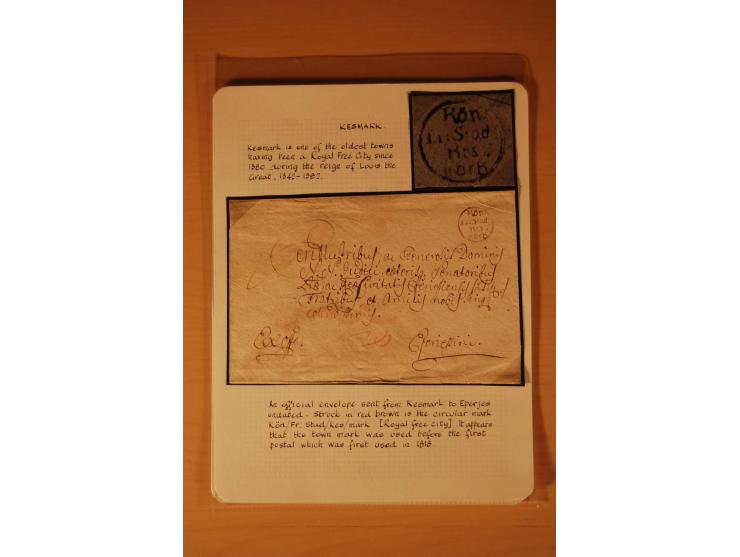 KESMARK.
Kesmark is one of the oldest towns
having been a Royal Free City since
1380 during the reign of Louis the
Great, 1342-1382.
Kön
Fr: Stad
Kes
mark
Kön
Kes
mark
ac Generosis Dominis
Judici, caeteris, Senatoribus
Civitatis Eperiesiensis
Fratribus et Amicis
Ex offo.
Eperiesini.
An official envelope sent from Kesmark to Eperjes
undated. Struck in red brown is the circular mark
Kön/Fr: Stad/Kes/mark. [Royal free city] It appears
that the town mark was used before the first
postal which was first used in 1818.